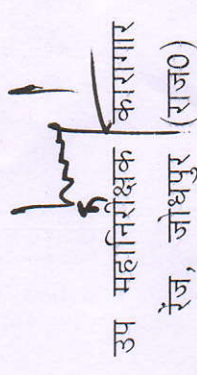 उप महानिरीक्षक कारागार
रेंज, जोधपुर (राज0)